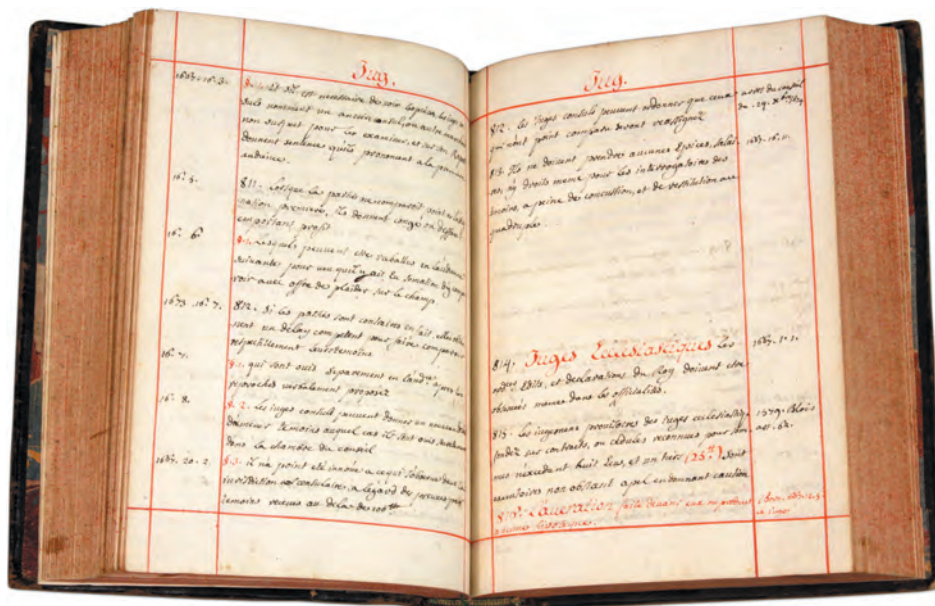 Jug.
1667. 16. 3.
est necessaire de voir les pieces, les juges
consuls nomment un ancien consul, ou autre marchand
non suspect pour les examiner, et sur son Rapport
donnent sentence qu'ils prononcent a la prochaine
audience.
16. 5.
811. Lorsque les parties ne comparoist point a la
nation premiere, Ils donnent congé ou deffaut
emportant profit
16. 6.
Lesquels peuvent etre rabattus en l'audience
suivante pour veu qu'il y ait eu sommation de comparoir
voir avec offre de plaider sur le champ.
1673. 16. 7.
812. Si les parties sont contraires en fait,
un delay competent pour faire comparoir
respectivement leurs temoins
16. 7.
qui sont ouis separement en l'aud.ce apres les
reproches verbalement proposez
16. 8.
§. 2. Les juges consuls peuvent donner un nouveau delay
temoins auquel cas ils sont ouis secretement
dans la chambre du conseil
1667. 20. 2.
§. 3. il n'a point été innové a ce qui s'observe dans les
jurisdiction consulaires a l'egard de preuves par
temoins receues au dela des 100tt
Jug.
812. Les Juges consuls peuvent ordonner que ceux
qui n'ont point comparu seront reassignez
arret du conseil
du 29. Xbre
813. Ils ne doivent prendre aucunes Epices, salaires,
ny droits meme pour les interrogatoires des
temoins, a peine de concussion, et de restitution au
quadruple.
1667. 16. 11.
814. Juges Ecclesiastiques les
Edits, et declarations du Roy doivent etre
observés meme dans les officialités.
1667. 1. 1.
815. Les jugemens provisoires des Juges ecclesiastiq.
fondez sur contrats, ou cédules reconnues pour som
mes n'excedent huit Ecus, et un tiers (25tt.) Sont
executoires non obstant apel en donnant caution
1579. Blois
art. 62.